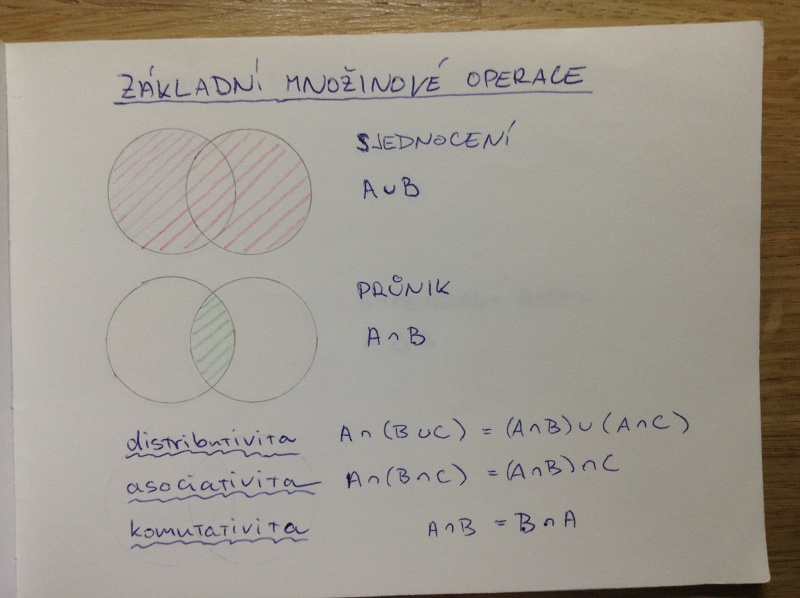 ZÁKLADNÍ MNOŽINOVÉ OPERACE
SJEDNOCENÍ
A∪B
PRŮNIK
A∩B
distributivita A∩(B∪C) = (A∩B)∪(A∩C)
asociativita A∩(B∩C) = (A∩B)∩C
komutativita A∩B = B∩A